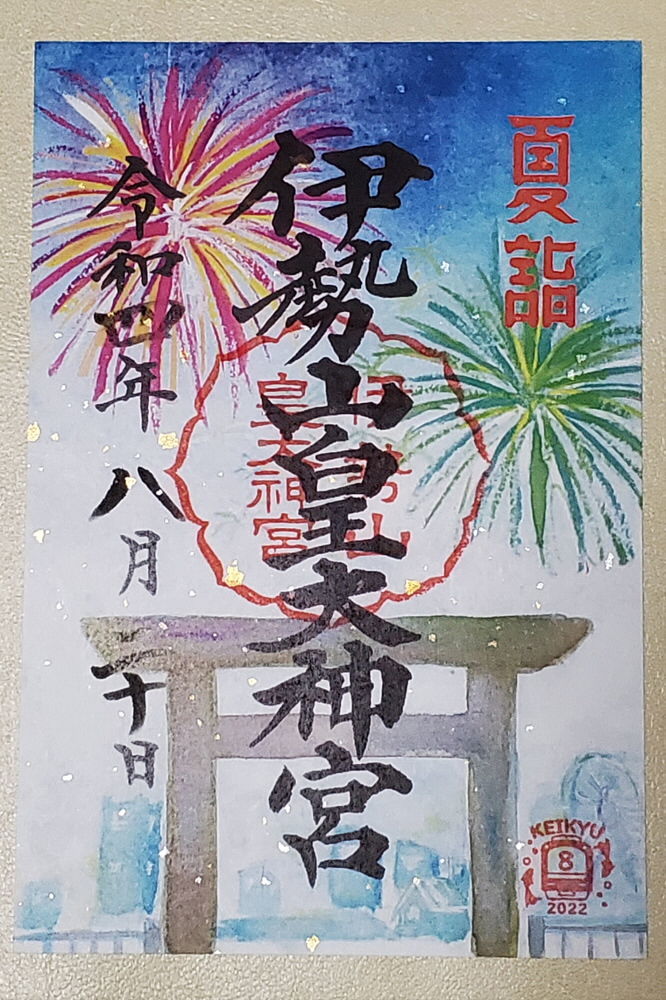 夏詣
伊勢山皇大神宮
伊勢山
皇大神宮
令和四年八月二十日
KEIKYU
8
2022